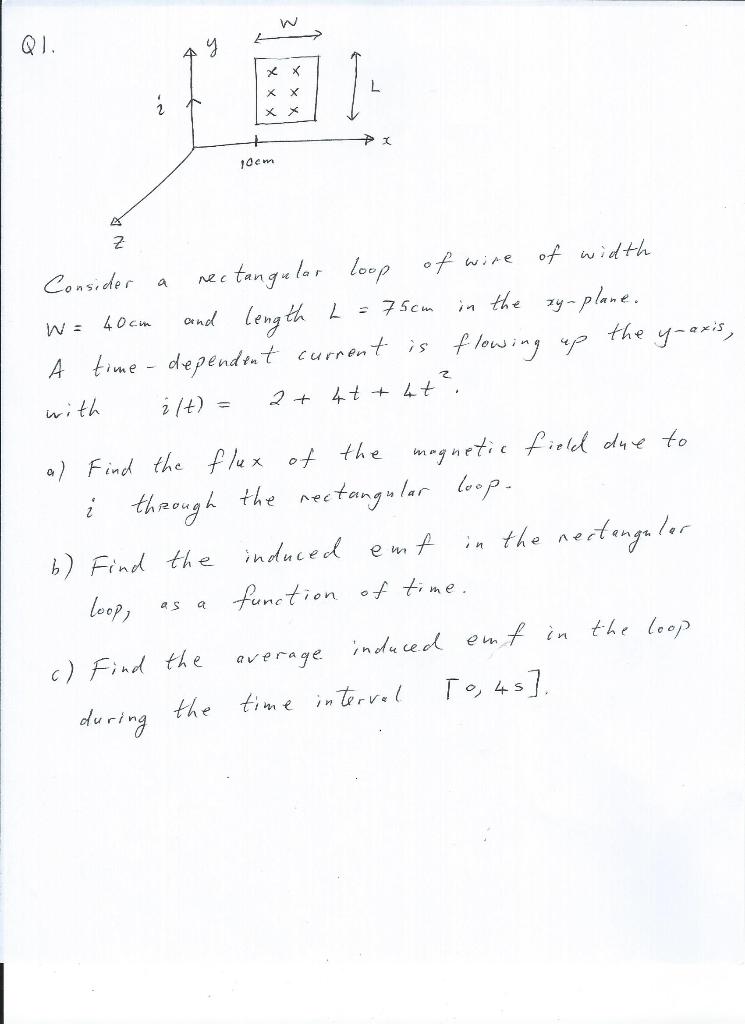 Q1.
W
y
i
L
x
10cm
z
Consider a rectangular loop of wire of width
W = 40cm and length L = 75cm in the xy-plane.
A time-dependent current is flowing up the y-axis,
with i(t) = 2 + 4t + 4t².
a) Find the flux of the magnetic field due to
i through the rectangular loop.
b) Find the induced emf in the rectangular
loop, as a function of time.
c) Find the average induced emf in the loop
during the time interval [0, 4s].